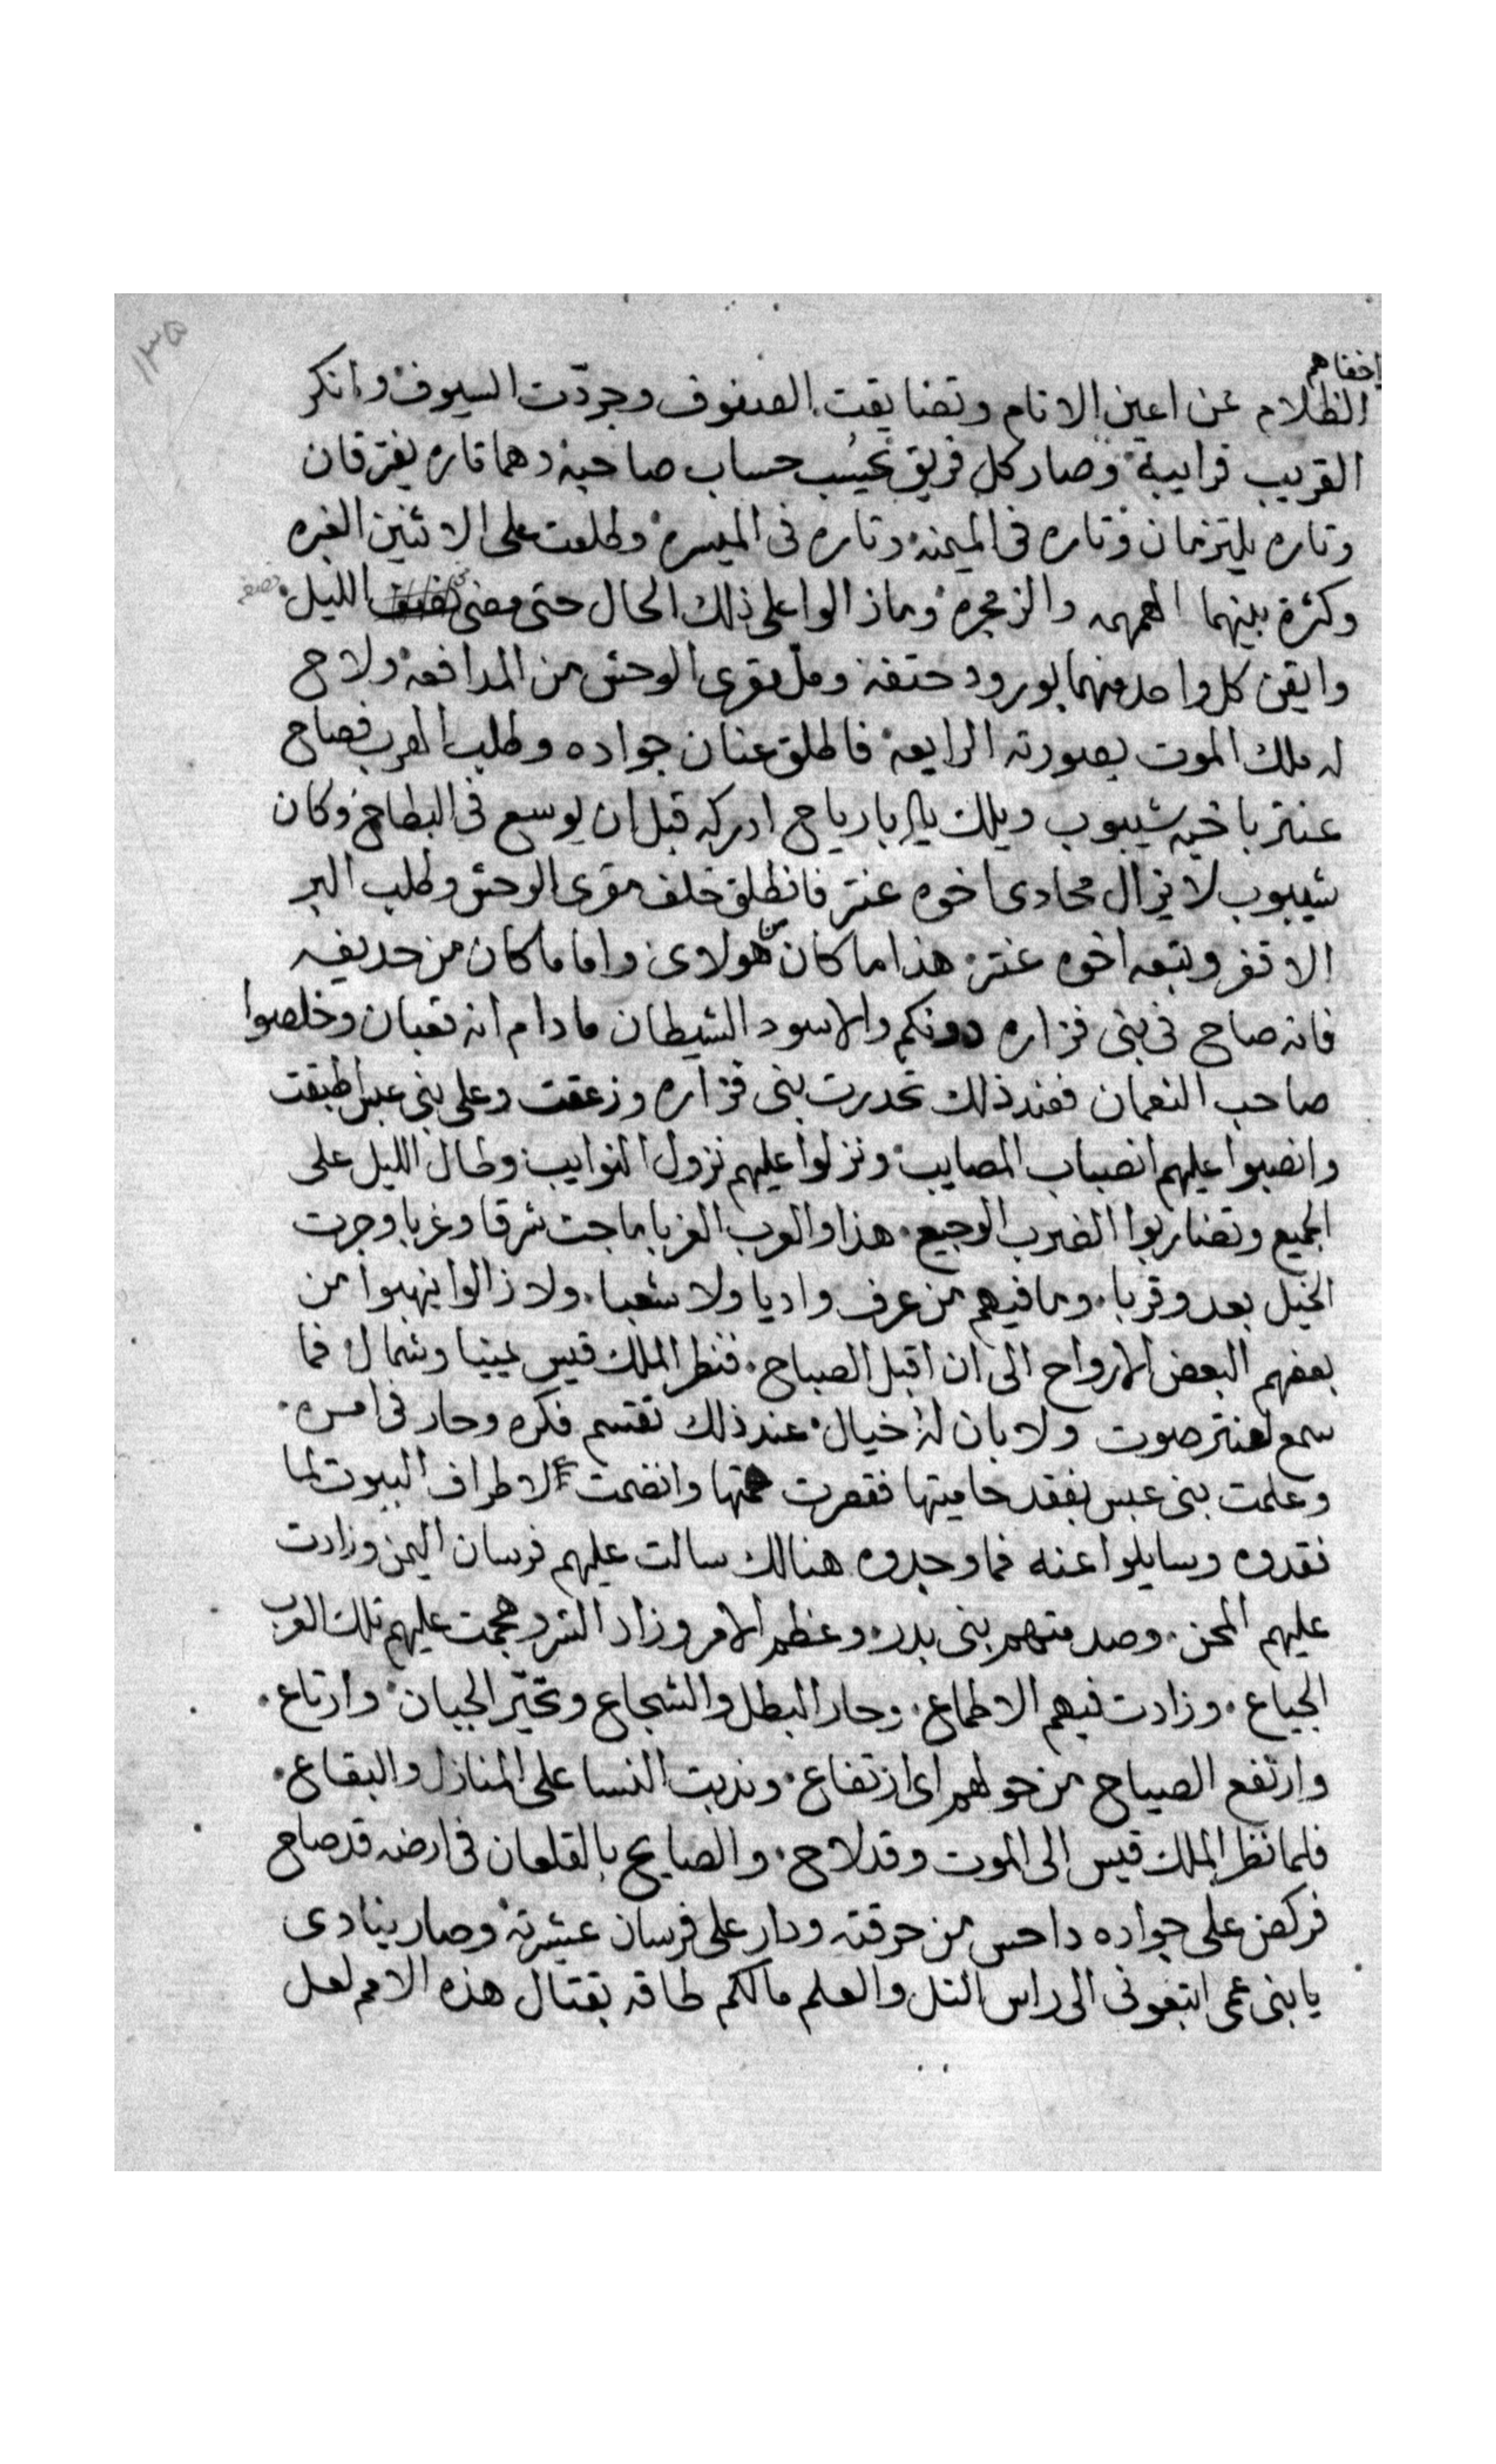 ١٣٥
اخفاهم
الظلام عن اعين الانام وتضايقت الصفوف وجردّت السيوف وانكر
القريب قرايبه وصار كل فريق يحسُب حساب صاحبه وهما تاره يفترقان
وتاره يلتزمان وتاره فى الميمنه وتاره فى الميسره وطلعت على الاثنين الغبره
وكثرة بينهما الهمهمه والزمجره ومازالوا على ذلك الحال حتى مضى الليل نصفه
وايقن كل واحد منهما بورود حتفه ومل مقرى الوحش من المدافعه ولاح
له ملك الموت بصورته الرايعه فاطلق عنان جواده وطلب الهرب فصاح
عنتر باخيه شيبوب ويلك يا ابا رياح ادركه قبل ان يوسع فى البطاح وكان
شيبوب لا يزال محادى اخوه عنتر فانطلق خلف مقرى الوحش وطلب البر
الاقفر وتبعه اخوه عنتر هذا ما كان من هولاى واما ما كان من حديفه
فانه صاح فى بنى فزاره دونكم والاسود الشيطان مادام انه تعبان وخلصوا
صاحب النعمان فعند ذلك تحدرت بنى فزاره وزعقت وعلى بنى عبس اطبقت
وانصبوا عليهم انصباب المصايب ونزلوا عليهم نزول النوايب وطال الليل على
الجميع وتضاربوا الضرب الوجيع هذا والعرب الغربا ماجت شرقا وغربا وجرت
الخيل بعد وقربا وما فيهم من عرف واديا ولا شعبا ولا زالوا ينهبوا من
بعضهم البعض الارواح الى ان اقبل الصباح فنظر الملك قيس يمينا وشمال فما
سمع لعنتر صوت ولا بان له خيال عند ذلك تقسم فكره وحار فى امره
وعلمت بنى عبس بفقد حاميتها فقصرت همتها وانضمت الاطراف البيوت لما
فقدوه وسايلوا عنه فما وجدوه هنالك سالت عليهم فرسان اليمن وزادت
عليهم المحن وصدمتهم بنى بدر وعظم الامر وزاد الشر وهجمت عليهم تلك العرب
الجياع وزادت فيهم الاطماع وحار البطل والشجاع وتحيّر الجبان وارتاع
وارتفع الصياح من حولهم اى ارتفاع وندبت النسا على المنازل والبقاع
فلما نظر الملك قيس الى الموت وقد لاح والصايح بالقلعان فى ارضه قد صاح
فركض على جواده داحس من حرقته ودار على فرسان عشيرته وصار ينادى
يا بنى عمى اتبعونى الى راس التل والعلم مالكم طاقه بقتال هذه الامم لعل